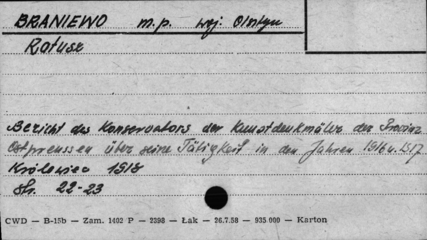 BRANIEWO m.p. woj. Olsztyn
Ratusz
Bericht des Konservators der Kunstdenkmäler der Provinz
Ostpreussen über seine Tätigkeit in den Jahren 1916 u. 1917
Królewiec 1918
str. 22-23
CWD — B-15b — Zam. 1402 P — 2398 — Łak — 26.7.58 — 935.000 — Karton